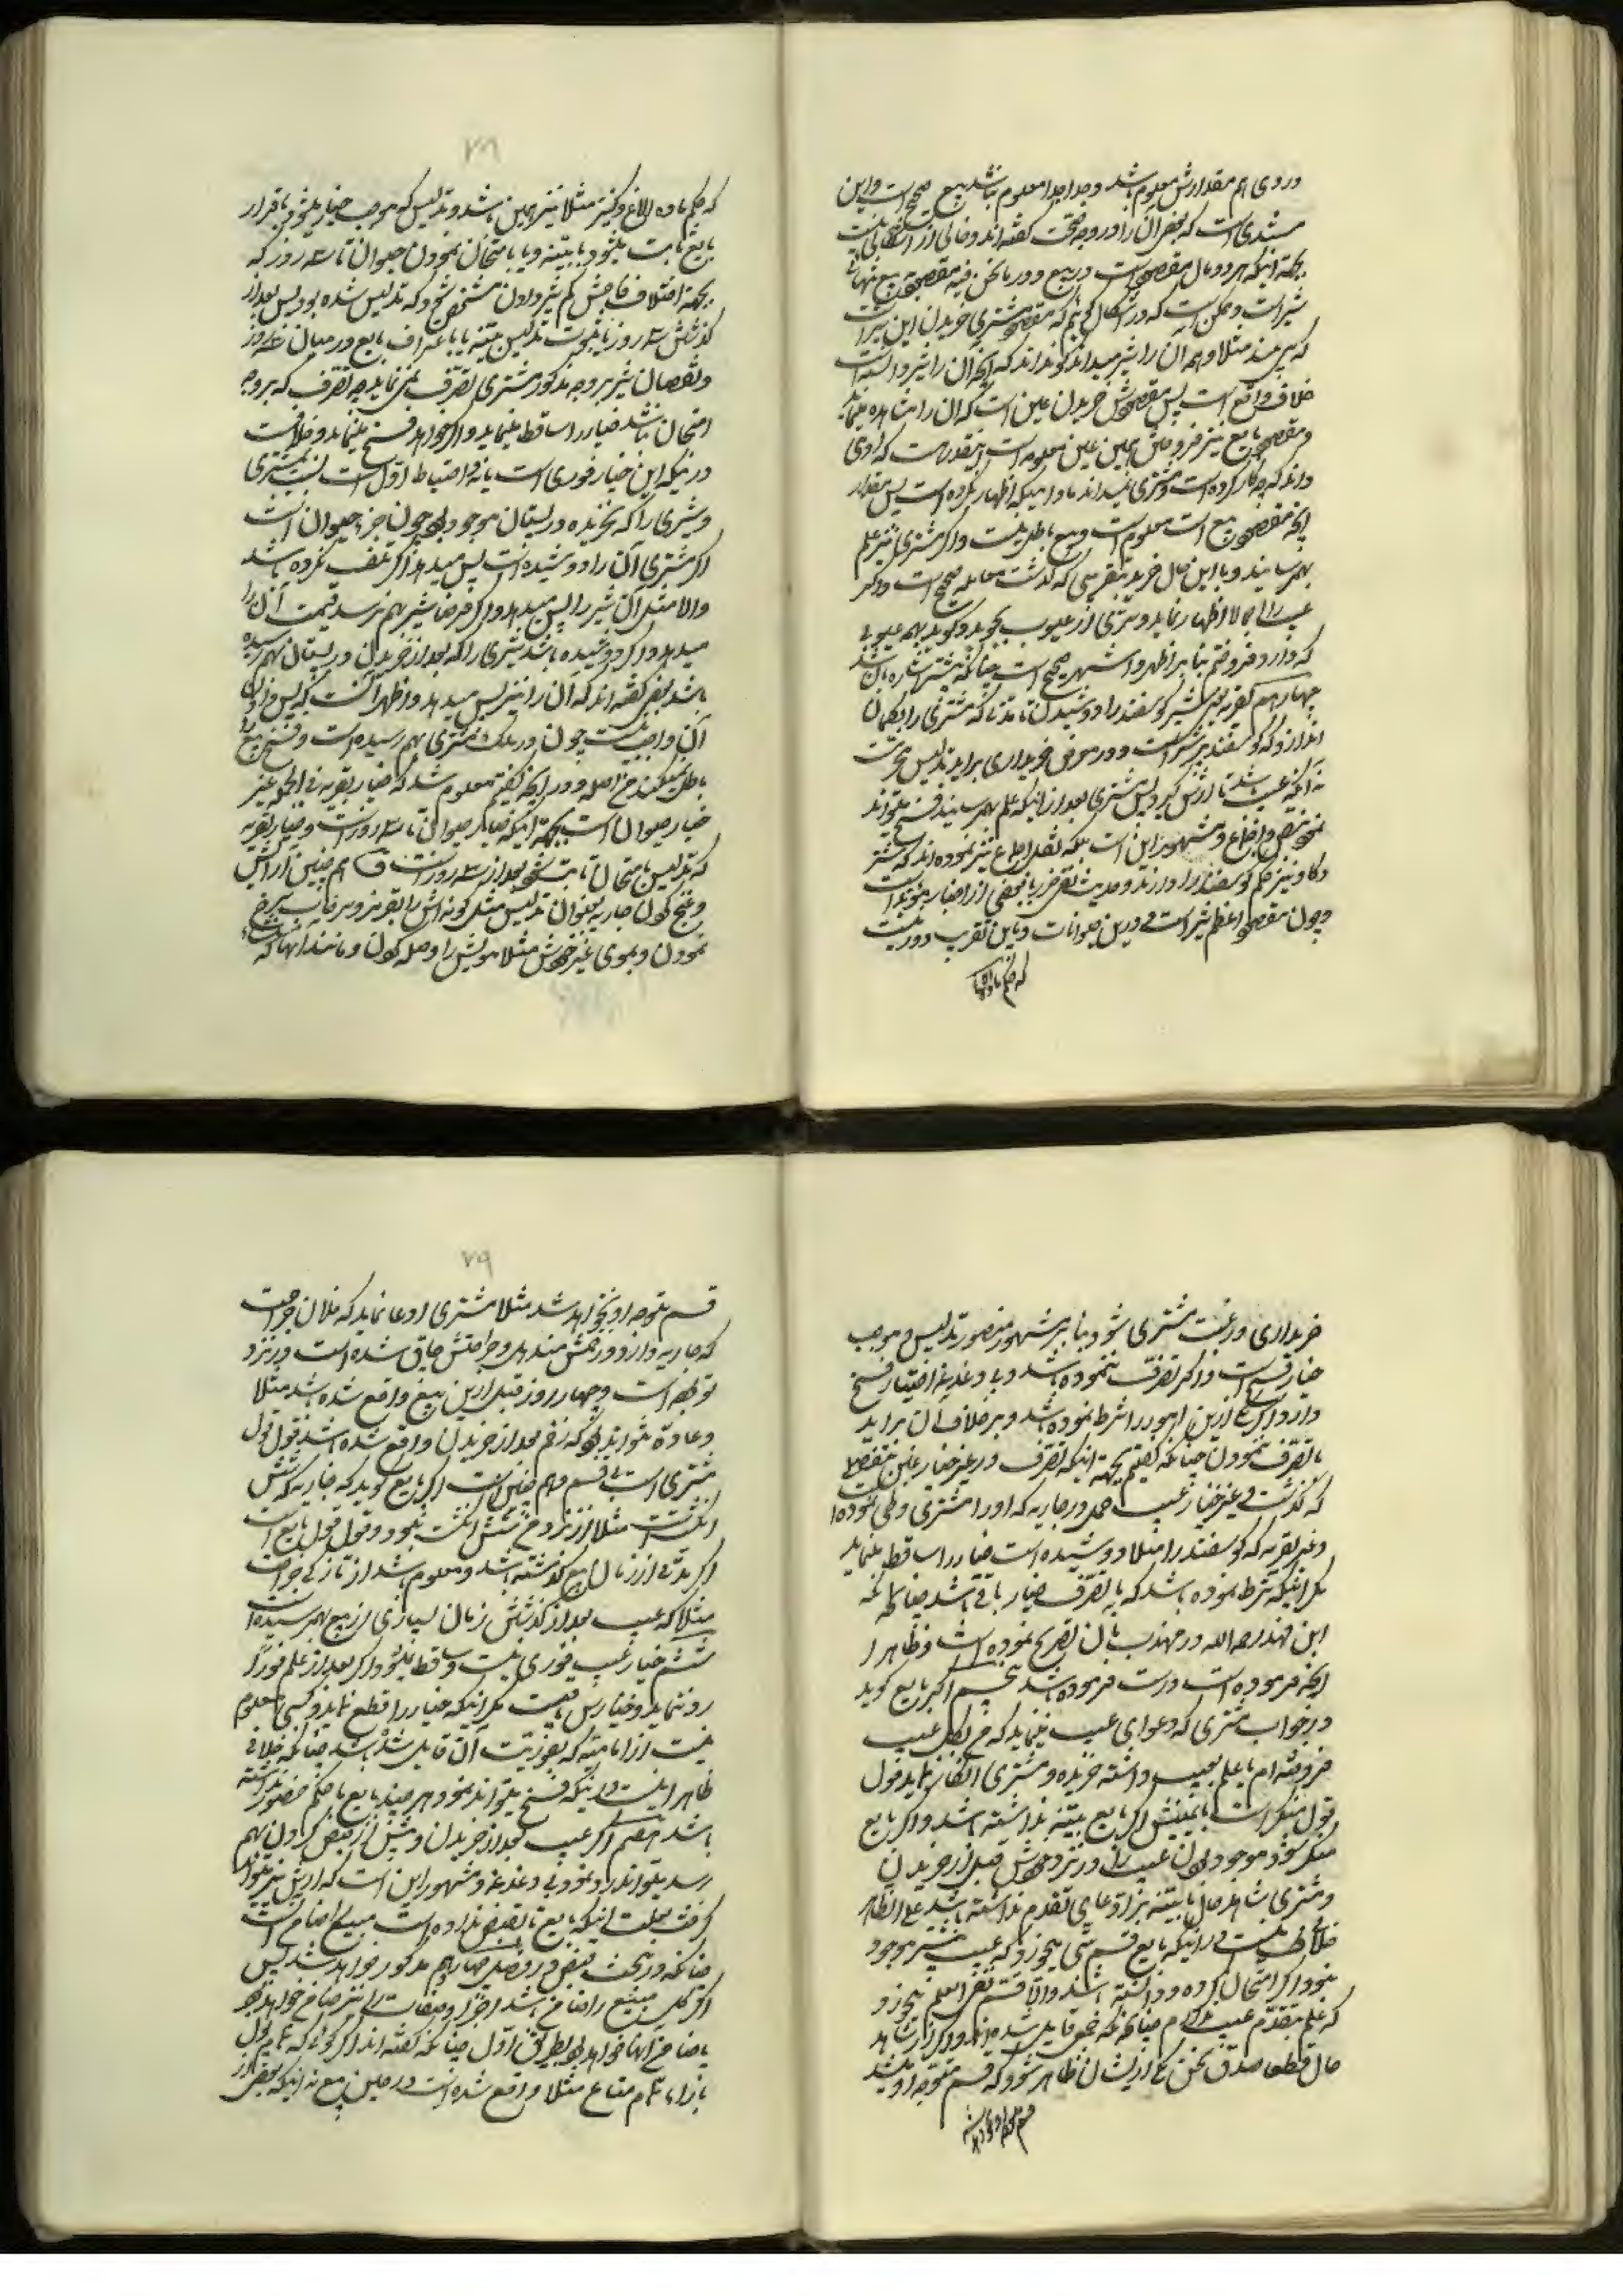 و روی هم مقدارش معلوم باشد و جدا جدا معلوم نباشد بیع صحیح است و این
است که بعضی آن را در وجه صحت گفته‌اند و خالی از اشکالی نیست
بجهة اینکه هر دو مال مقصود است در بیع و در ما نحن فیه مقصود بیع تنهائی
شیر است و ممکن است که در اشکال گوئیم که مقصود مشتری خریدن این شیر است
که می‌بیند مثلا و همه آن را شیر میداند گو نداند که آنچه آن را شیر دانسته است
خلاف واقع است پس مقصودش خریدن عین است که آن را مشاهده مینماید
و مقصود بایع نیز فروختن همین عین معلومه است اینقدر هست که او می
داند که چه کار کرده است و مشتری نمیداند مادامیکه اظهار نکرده است پس مقدار
آنچه مقصود بیع است معلوم است و بیع باطل نیست و اگر مشتری نیز علم
بهم رساند و با این حال خرید بتقریبی که گذشت معامله صحیح است و اگر
عیب را اجمالا اظهار نماید و تبری از عیوب بجوید و گوید بهمه عیوبی
که دارد فروختم بنا بر اظهر و اشهر صحیح است چنانکه پیشتر اشاره بآن شد
چهارم تصریه شیر گوسفند را ندوشیدن تا مدتی که مشتری را بگمان
اندازد که گوسفند پر شیر است و در معرض خریداری برآید تدلیس محرم است
نه آنکه عیب باشد تا ارش گیرد پس مشتری بعد از اینکه علم بهم رساند فسخ میتواند
نمود بنص و اجماع و مشهور این است بلکه نقل اجماع نیز نموده‌اند که شتر
و گاو نیز حکم گوسفند را دارند و حدیث نفی ضرر با بعضی از اخبار مؤید است
و چون مقصود اعظم شیر است در این حیوانات و باین تقریب دور نیست
که حکم ماده
که حکم ماده الاغ و کنیز مثلا نیز چنین باشد و تدلیس که موجب خیار میشود باقرار
بایع ثابت میشود یا ببینه و یا بامتحان نمودن حیوان تا سه روز که
بجهة اختلاف فاحش کم شیر دادن مشخص شود که تدلیس شده بود پس بعد از
گذشتن سه روز یا ثبوت تدلیس ببینه یا باعتراف بایع در میان سه روز
و نقصان شیر بر وجه مذکور مشتری تصرف نمی‌نماید چه تصرف که بر وجه
امتحان نباشد خیار را ساقط مینماید و اگر خواهد فسخ مینماید و خلاف است
در اینکه این خیار فوری است یا نه و احتیاط اول است نسبت بمشتری
و شیری را که نخریده در پستان موجود بود چون جزء حیوان است
اگر مشتری آن را دوشیده است پس میدهد اگر تلف نکرده باشد
والا مثل آن شیر را پس میدهد و اگر فرضا شیر بهم نرسد قیمت آن را
میدهد و اگر دوشیده باشد شیری را که بعد از خریدن در پستان بهم رسیده
باشد بعضی گفته‌اند که آن را نیز پس میدهد و اظهر آنست که پس دادن
آن واجب نیست چون در ملک مشتری بهم رسیده است و فسخ بیع را
باطل نمیکند من اصله و در آنچه گفتیم معلوم شد که خیار تصریه فی الجمله غیر
خیار حیوان است بجهة اینکه خیار حیوان تا سه روز است و خیار تصریه
که تدلیس بامتحان ثابت شود بعد از سه روز است و هم چنین آرایش
نمودن و بموی غیر خودش مثلا مویش را وصله کردن و مانند اینها که
خریداری و رغبت مشتری شود بنا بر مشهور منصور تدلیس و موجب
خیار فسخ است و اگر تصرف ننموده باشد و بی دغدغه اختیار فسخ
دارد و اگر یکی از این امور را شرط نموده باشد و بر خلاف آن برآید
یا تصرف نمودن چنانکه گفتیم بجهة اینکه تصرف در غیر خیار غبن بتفصیلی
که گذشت و غیر خیار عیب حمل در جاریه که او را مشتری وطی نموده است
و غیر تصریه که گوسفند را مثلا دوشیده است خیار را ساقط مینماید
مگر اینکه شرط نموده باشد که با تصرف خیار باقی باشد چنانکه
ابن فهد رحمه الله در مهذب بآن تصریح نموده است و ظاهرا
آنچه فرموده است درست فرموده باشد پنجم اگر بایع گوید
در جواب مشتری که دعوای عیب مینماید که من بکل عیب
فروخته‌ام یا علم بعیب داشته خریده و مشتری انکار نماید قول
قول منکر است با یمینش اگر بایع بینه نداشته باشد و اگر بایع
منکر شود موجود بودن عیب را در نزد خودش قبل از خریدن
و مشتری شاهد حال یا بینه بر ادعای تقدم نداشته باشد علی الظاهر
خلافی نیست در اینکه بایع قسم میخورد که عیب پیشتر موجود
نبود اگر امتحان کرده و دانسته باشد والا قسم نفی العلم میخورد
که علم بتقدم عیب ندارم چنانکه جمعی قایل شده‌اند و اگر از شاهد
حال قطعا صدق سخن یکی از ایشان ظاهر شود که قسم متوجه او نمیشد
قسم متوجه او نخواهد شد
قسم متوجه او نخواهد شد مثلا مشتری ادعا نماید که فلان جراحت
که جاریه دارد و زخمش مندمل و جراحتش چاق شده است در نزد
تو بوده است و چهار روز قبل از این بیع واقع شده باشد مثلا
و عادة نتواند بود که زخم بعد از خریدن واقع شده باشد قول قول
مشتری است بی قسم و هم چنین است اگر بایع گوید که جاریه که شش
انگشت است مثلا از نزد من شش انگشت نبود و قول قول بایع است
اگر مدتی از زمان بیع گذشته باشد و معلوم باشد از تازگی جراحت
مثلا که عیب بعد از گذشتن زمان بسیاری از بیع بهم رسیده است
ششم خیار عیب فوری نیست و ساقط نمیشود اگر بعد از علم فورا
رد ننماید و خیارش باقیست مگر اینکه خیار را قطع نماید و کسی معلوم
نیست از امامیه که بفوریت آن قایل شده باشد چنانکه خلافی
ظاهرا نیست در اینکه فسخ میتواند نمود هر چند بایع یا حاکم حضور نداشته
باشد هفتم اگر عیب بعد از خریدن و پیش از قبض کردن بهم
رسد میتواند رد نمود بی دغدغه و مشهور این است که ارش نیز میتواند
گرفت بعلت اینکه بایع تا بقبض نداده است مبیع را ضامن است
چنانکه در بحث قبض در فصل چهارم مذکور خواهد شد پس
اگر کل مبیع را ضامن باشد اجزا و صفات را نیز ضامن خواهد بود
یا ضامن آنها خواهد بود بطریق اول چنانکه گفته‌اند اگر گوئی که تمام پول
بازاء تمام متاع مثلا واقع شده است در حین بیع نه اینکه بعضی از